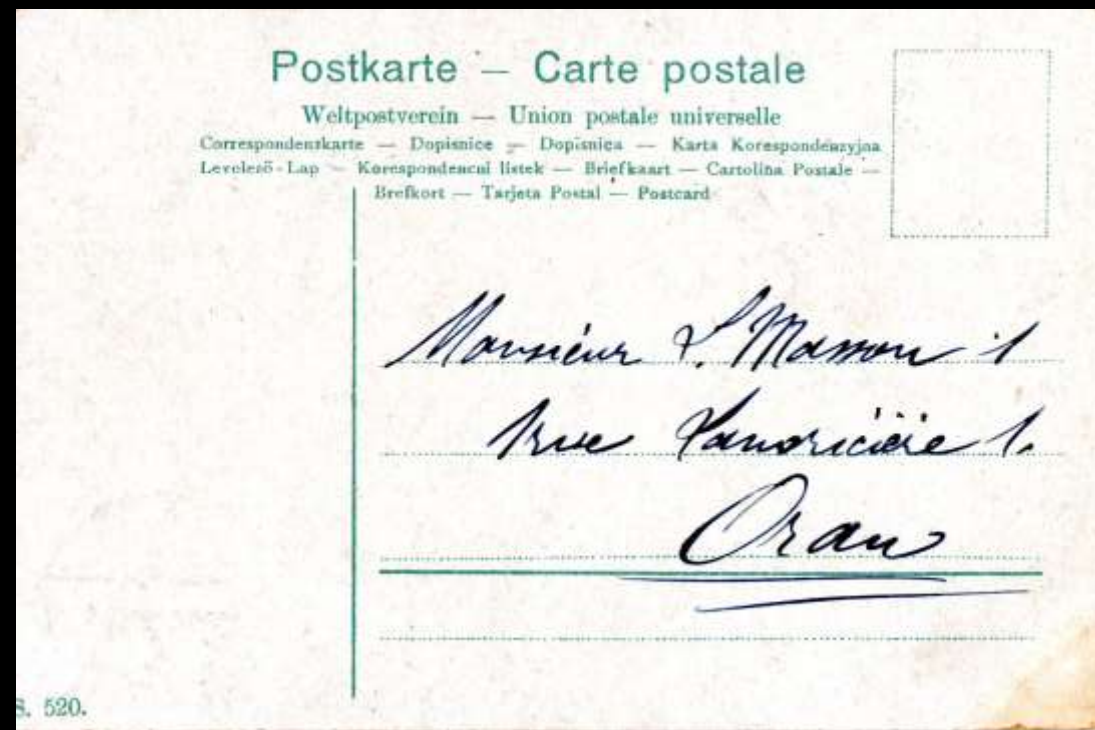 Postkarte – Carte postale
Weltpostverein — Union postale universelle
Correspondenzkarte — Dopisnice — Dopisnica — Karta Korespondenzyjna
Levelező-Lap — Korespondencni listek — Briefkaart — Cartolina Postale —
Brefkort — Tarjeta Postal — Postcard
Monsieur L. Masson 1
rue Lamoricière 1.
Oran
S. 520.